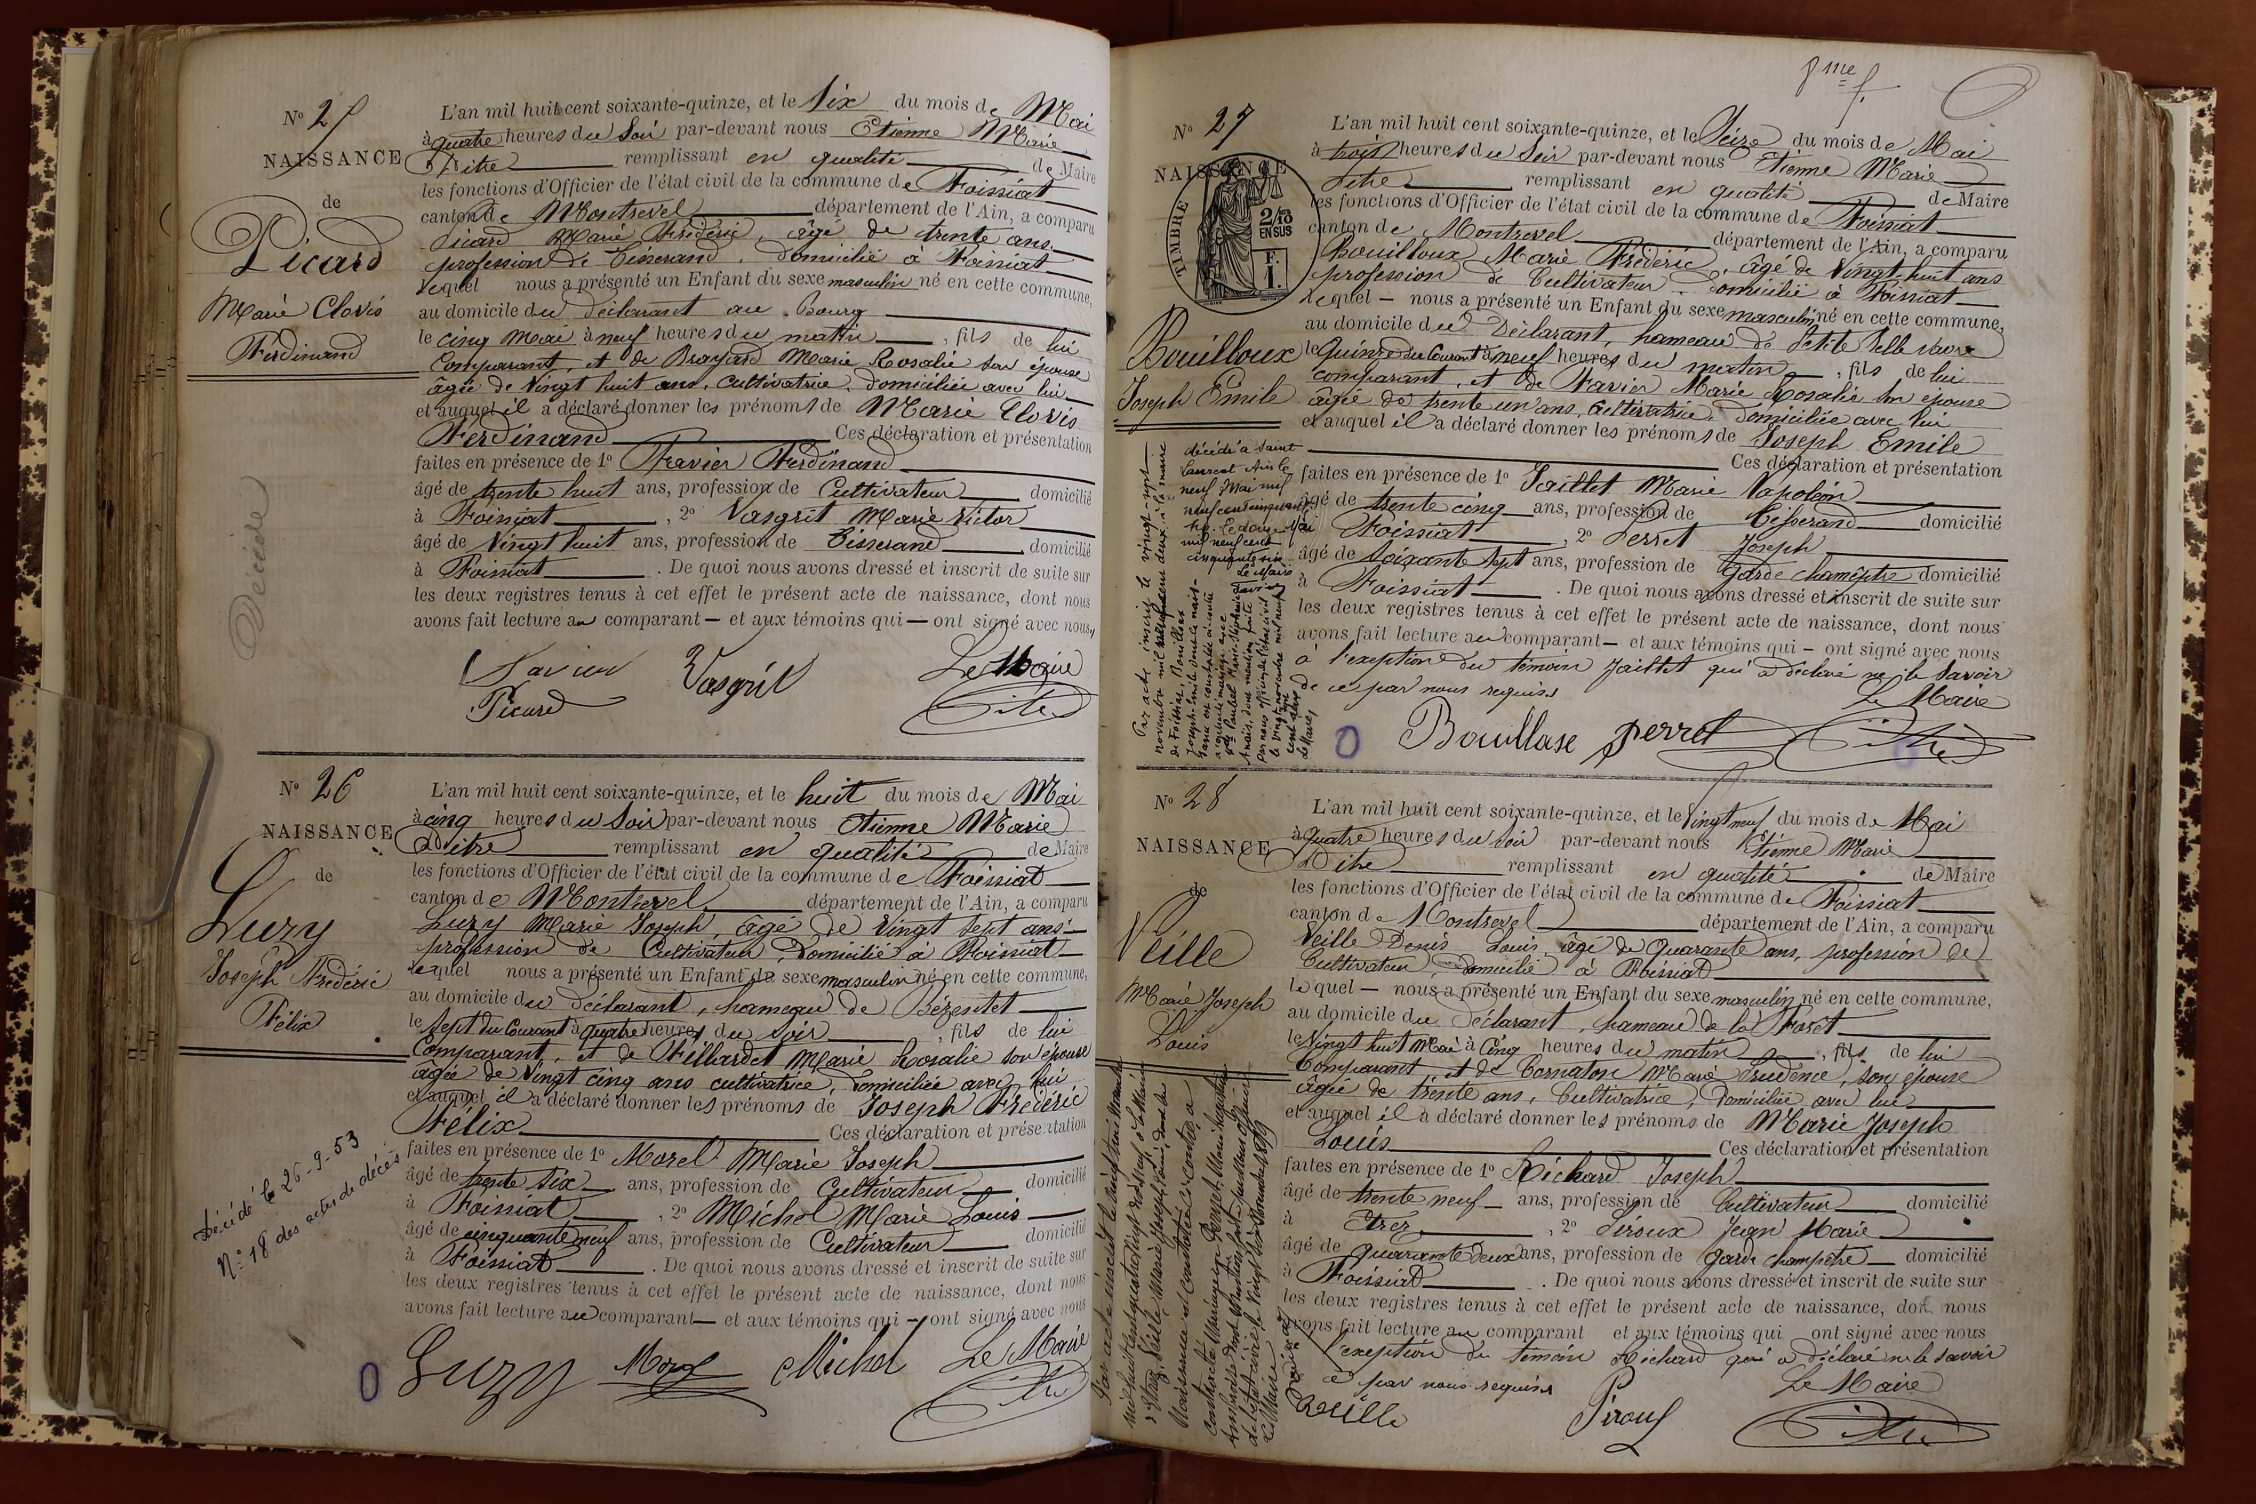 N° 25
NAISSANCE
de
Picard
Marie Clovis
Ferdinand
Décédé
L'an mil huit cent soixante-quinze, et le Six du mois de Mai
à quatre heures du Soir par-devant nous Etienne Marie
Pitre remplissant en qualité de Maire
les fonctions d'Officier de l'état civil de la commune de Foissiat
canton de Montrevel département de l'Ain, a comparu
Picard Marie Frédéric, âgé de trente ans,
profession de Tisserand, domicilié à Foissiat
lequel nous a présenté un Enfant du sexe masculin né en cette commune,
au domicile du déclarant au Bourg
le cinq Mai à neuf heures du matin, fils de lui
Comparant, et de Brayard Marie Rosalie son épouse
âgée de Vingt huit ans, cultivatrice, domiciliée avec lui
et auquel il a déclaré donner les prénoms de Marie Clovis
Ferdinand Ces déclaration et présentation
faites en présence de 1° Favier Ferdinand
âgé de trente huit ans, profession de Cultivateur domicilié
à Foissiat, 2° Vasgrit Marie Victor
âgé de Vingt huit ans, profession de Tisserand, domicilié
à Foissiat. De quoi nous avons dressé et inscrit de suite sur
les deux registres tenus à cet effet le présent acte de naissance, dont nous
avons fait lecture au comparant — et aux témoins qui — ont signé avec nous,
Favier Vasgrit Le Maire
Picard Pitre
N° 26
NAISSANCE
de
Luzy
Joseph Frédéric
Félix
Décédé le 26-9-53
N° 18 des actes de décès
L'an mil huit cent soixante-quinze, et le huit du mois de Mai
à cinq heures du Soir par-devant nous Etienne Marie
Pitre remplissant en qualité de Maire
les fonctions d'Officier de l'état civil de la commune de Foissiat
canton de Montrevel département de l'Ain, a comparu
Luzy Marie Joseph, âgé de Vingt Sept ans
profession de Cultivateur, domicilié à Foissiat
lequel nous a présenté un Enfant du sexe masculin né en cette commune,
au domicile du déclarant, hameau de Bézentet
le Sept du Courant à quatre heures du Soir, fils de lui
Comparant, et de Fillardet Marie Rosalie son épouse
âgée de Vingt cinq ans cultivatrice, domiciliée avec lui
et auquel il a déclaré donner les prénoms de Joseph Frédéric
Félix Ces déclaration et présentation
faites en présence de 1° Morel Marie Joseph
âgé de trente Six ans, profession de Cultivateur domicilié
à Foissiat, 2° Michel Marie Louis
âgé de cinquante neuf ans, profession de Cultivateur domicilié
à Foissiat. De quoi nous avons dressé et inscrit de suite sur
les deux registres tenus à cet effet le présent acte de naissance, dont nous
avons fait lecture au comparant — et aux témoins qui — ont signé avec nous
Luzy Morel Michel Le Maire
Pitre
8me f.
N° 27
NAISSANCE
TIMBRE
2/10
EN SUS
F.
1.
Bouilloux
Joseph Emile
décédé à Saint
Laurent Ain le
neuf Mai mil
neuf cent cinquante
six. Le douze Mai
mil neuf cent
cinquante six
Le Maire
L'an mil huit cent soixante-quinze, et le Seize du mois de Mai
à trois heures du Soir par-devant nous Etienne Marie
Pitre remplissant en qualité de Maire
les fonctions d'Officier de l'état civil de la commune de Foissiat
canton de Montrevel département de l'Ain, a comparu
Bouilloux Marie Frédéric, âgé de Vingt-huit ans
profession de Cultivateur, domicilié à Foissiat
lequel — nous a présenté un Enfant du sexe masculin né en cette commune,
au domicile du Déclarant, hameau de Petite Selle
le Quinze du Courant à neuf heures du matin, fils de lui
comparant, et de Favier Marie Rosalie son épouse
âgée de trente un ans, Cultivatrice, domiciliée avec lui
et auquel il a déclaré donner les prénoms de Joseph Emile
Ces déclaration et présentation
faites en présence de 1° Jaillet Marie Napoléon
âgé de trente cinq ans, profession de Tisserand domicilié
à Foissiat, 2° Perret Joseph
âgé de Soixante Sept ans, profession de garde champêtre domicilié
à Foissiat. De quoi nous avons dressé et inscrit de suite sur
les deux registres tenus à cet effet le présent acte de naissance, dont nous
avons fait lecture au comparant — et aux témoins qui — ont signé avec nous
à l'exeption du témoin Jaillet qui a déclaré ne le Savoir
de ce par nous requis. Le Maire
Bouillouse perret Pitre
N° 28
NAISSANCE
de
Veille
Marie Joseph
Louis
L'an mil huit cent soixante-quinze, et le Vingt neuf du mois de Mai
à Quatre heures du soir par-devant nous Etienne Marie
Pitre remplissant en qualité de Maire
les fonctions d'Officier de l'état civil de la commune de Foissiat
canton de Montrevel département de l'Ain, a comparu
Veille Denis Louis âgé de Quarante ans, profession de
Cultivateur, domicilié à Foissiat
lequel — nous a présenté un Enfant du sexe masculin né en cette commune,
au domicile du déclarant, hameau de la Forêt
le Vingt huit Mai à Cinq heures du matin, fils de lui
Comparant et de Cornaton Marie Prudence, son épouse
âgée de trente ans, Cultivatrice, domiciliée avec lui
et auquel il a déclaré donner les prénoms de Marie Joseph
Louis Ces déclaration et présentation
faites en présence de 1° Richard Joseph
âgé de trente neuf ans, profession de Cultivateur domicilié
à Etrez, 2° Piroux Jean Marie
âgé de quarante Deux ans, profession de garde champêtre domicilié
à Foissiat. De quoi nous avons dressé et inscrit de suite sur
les deux registres tenus à cet effet le présent acte de naissance, dont nous
avons fait lecture au comparant et aux témoins qui ont signé avec nous
l'exeption du témoin Richard qui a déclaré ne le savoir
ce par nous requis. Le Maire
Veille Piroux Pitre